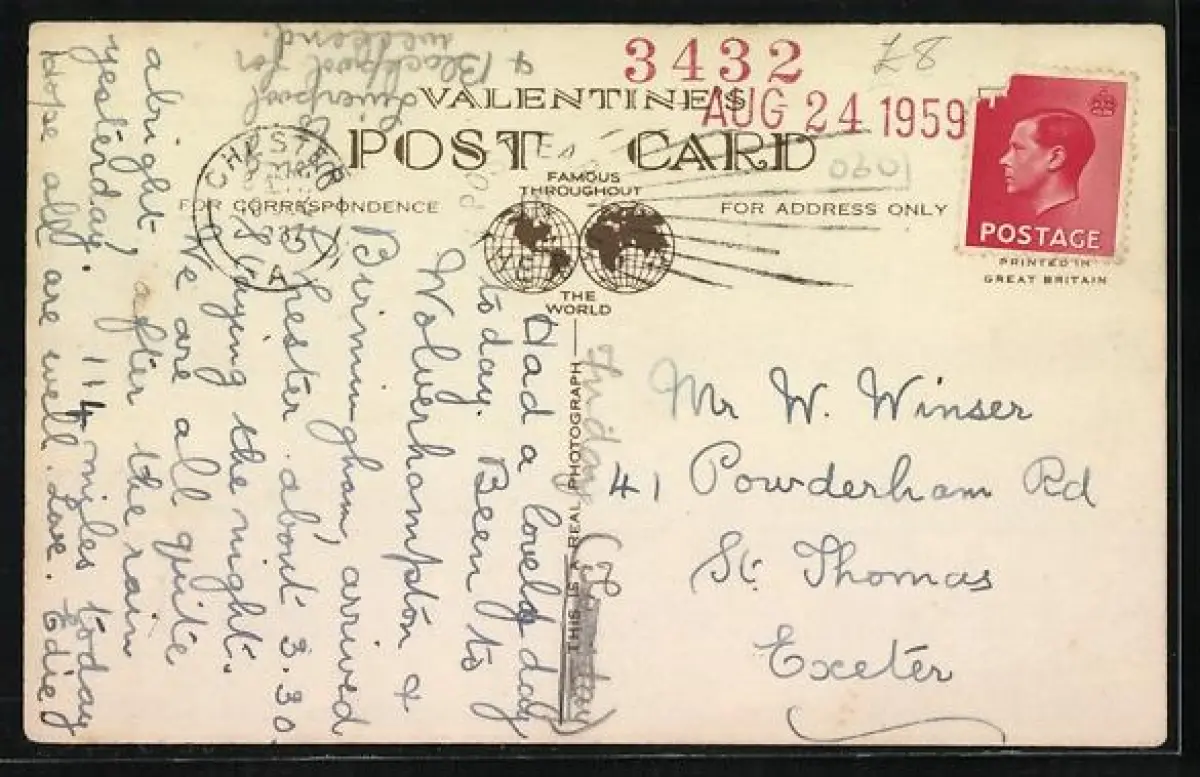 3432
£8
VALENTINE'S
AUG 24 1959
POST CARD
1090
FAMOUS
THROUGHOUT
THE
WORLD
FOR CORRESPONDENCE
FOR ADDRESS ONLY
CHESTER
A
POSTAGE
PRINTED IN
GREAT BRITAIN
THIS IS A REAL PHOTOGRAPH
Friday
Had a lovely day
today. Been to
Wolverhampton &
Birmingham, arrived
Chester about 3.30
staying the night.
We are all quite
abright, after the rain
yesterday. 114 miles today
Hope all are well. Love. Edie
Liverpool
& Blackpool for
weekend.
Mr W. Winser
41 Powderham Rd
St. Thomas
Exeter